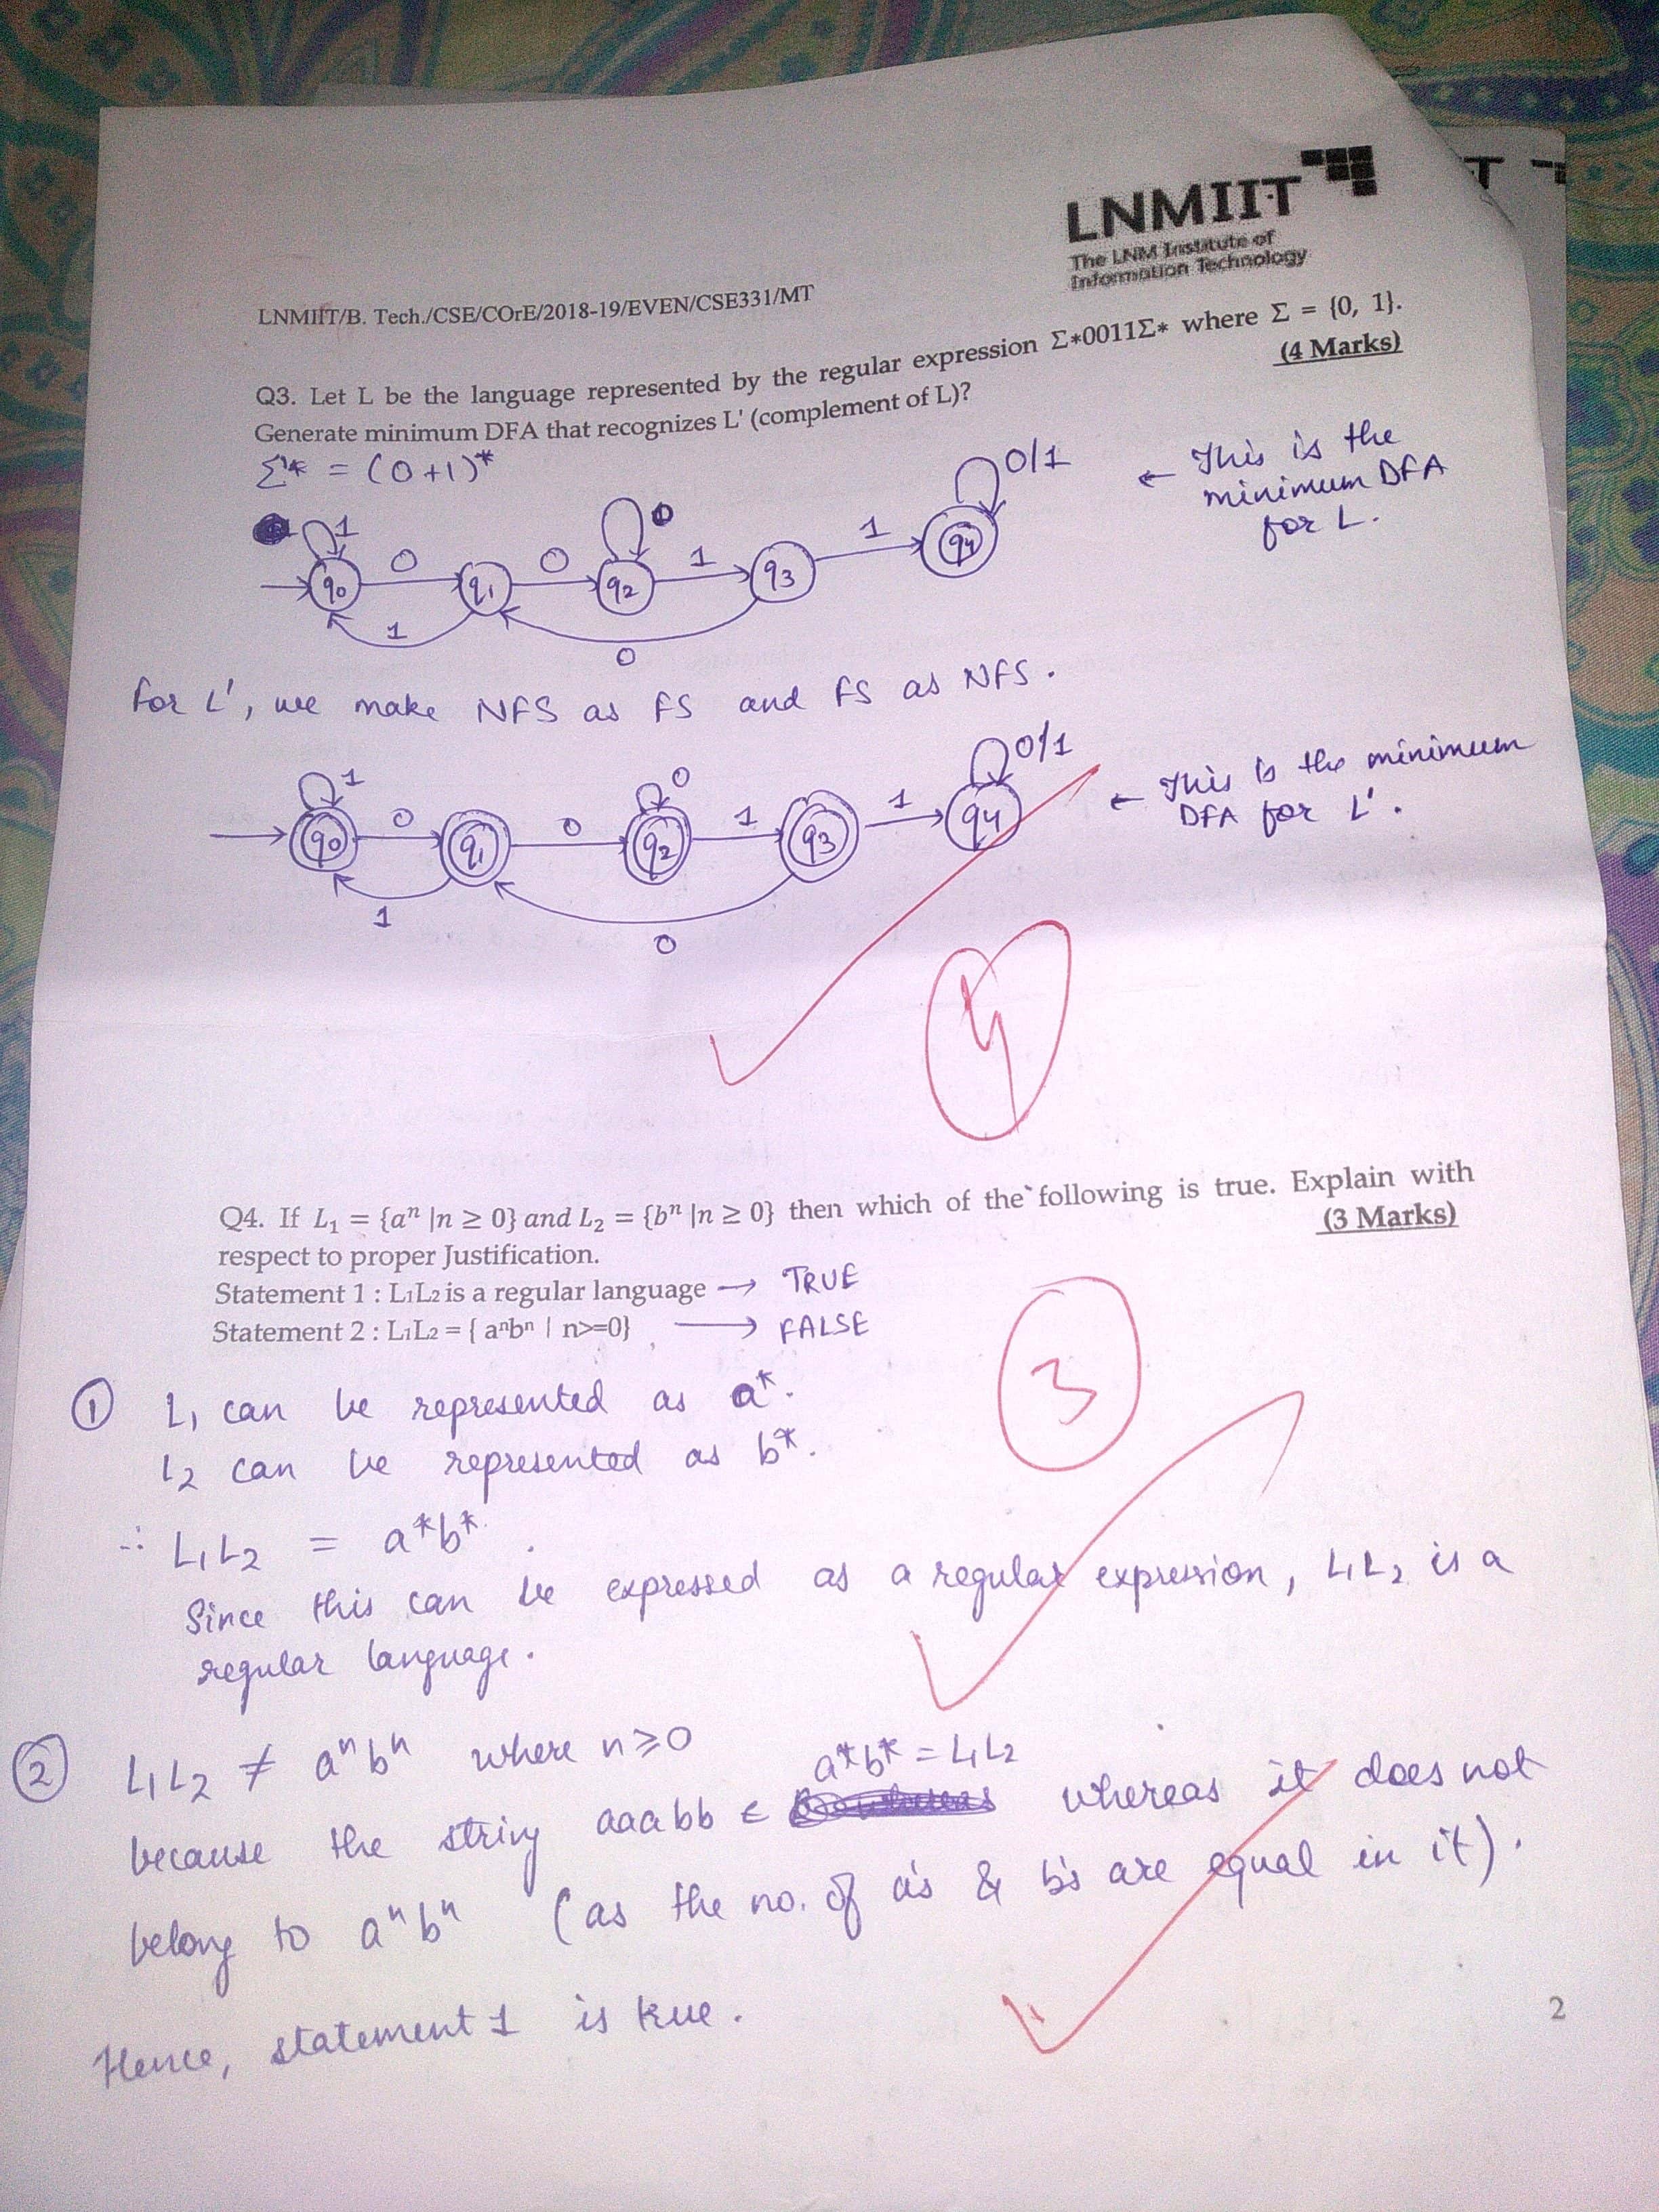 LNMIIT
The LNM Institute of
Information Technology
LNMIIT/B. Tech./CSE/COrE/2018-19/EVEN/CSE331/MT
Q3. Let L be the language represented by the regular expression Σ*0011Σ* where Σ = {0, 1}.
Generate minimum DFA that recognizes L' (complement of L)?
(4 Marks)
Σ* = (0+1)*
← This is the
minimum DFA
for L.
1 0 0 1 1 0/1
q0 q1 0 q2 1 q3 q4
1 0
For L', we make NFS as FS and FS as NFS.
1 0 0/1
0 0 1 1
q0 q1 q2 q3 q4
1 0
← This is the minimum
DFA for L'.
4
Q4. If L₁ = {aⁿ |n ≥ 0} and L₂ = {bⁿ |n ≥ 0} then which of the following is true. Explain with
respect to proper Justification.
(3 Marks)
Statement 1 : L₁L₂ is a regular language → TRUE
Statement 2 : L₁L₂ = { aⁿbⁿ | n>=0} → FALSE
3
① L₁ can be represented as a*.
L₂ can be represented as b*.
∴ L₁L₂ = a*b*.
Since this can be expressed as a regular expression, L₁L₂ is a
regular language.
② L₁L₂ ≠ aⁿbⁿ where n≥0
a*b* = L₁L₂
because the string aaabb ∈ whereas it does not
belong to aⁿbⁿ (as the no. of a's & b's are equal in it).
Hence, statement 1 is true.
2